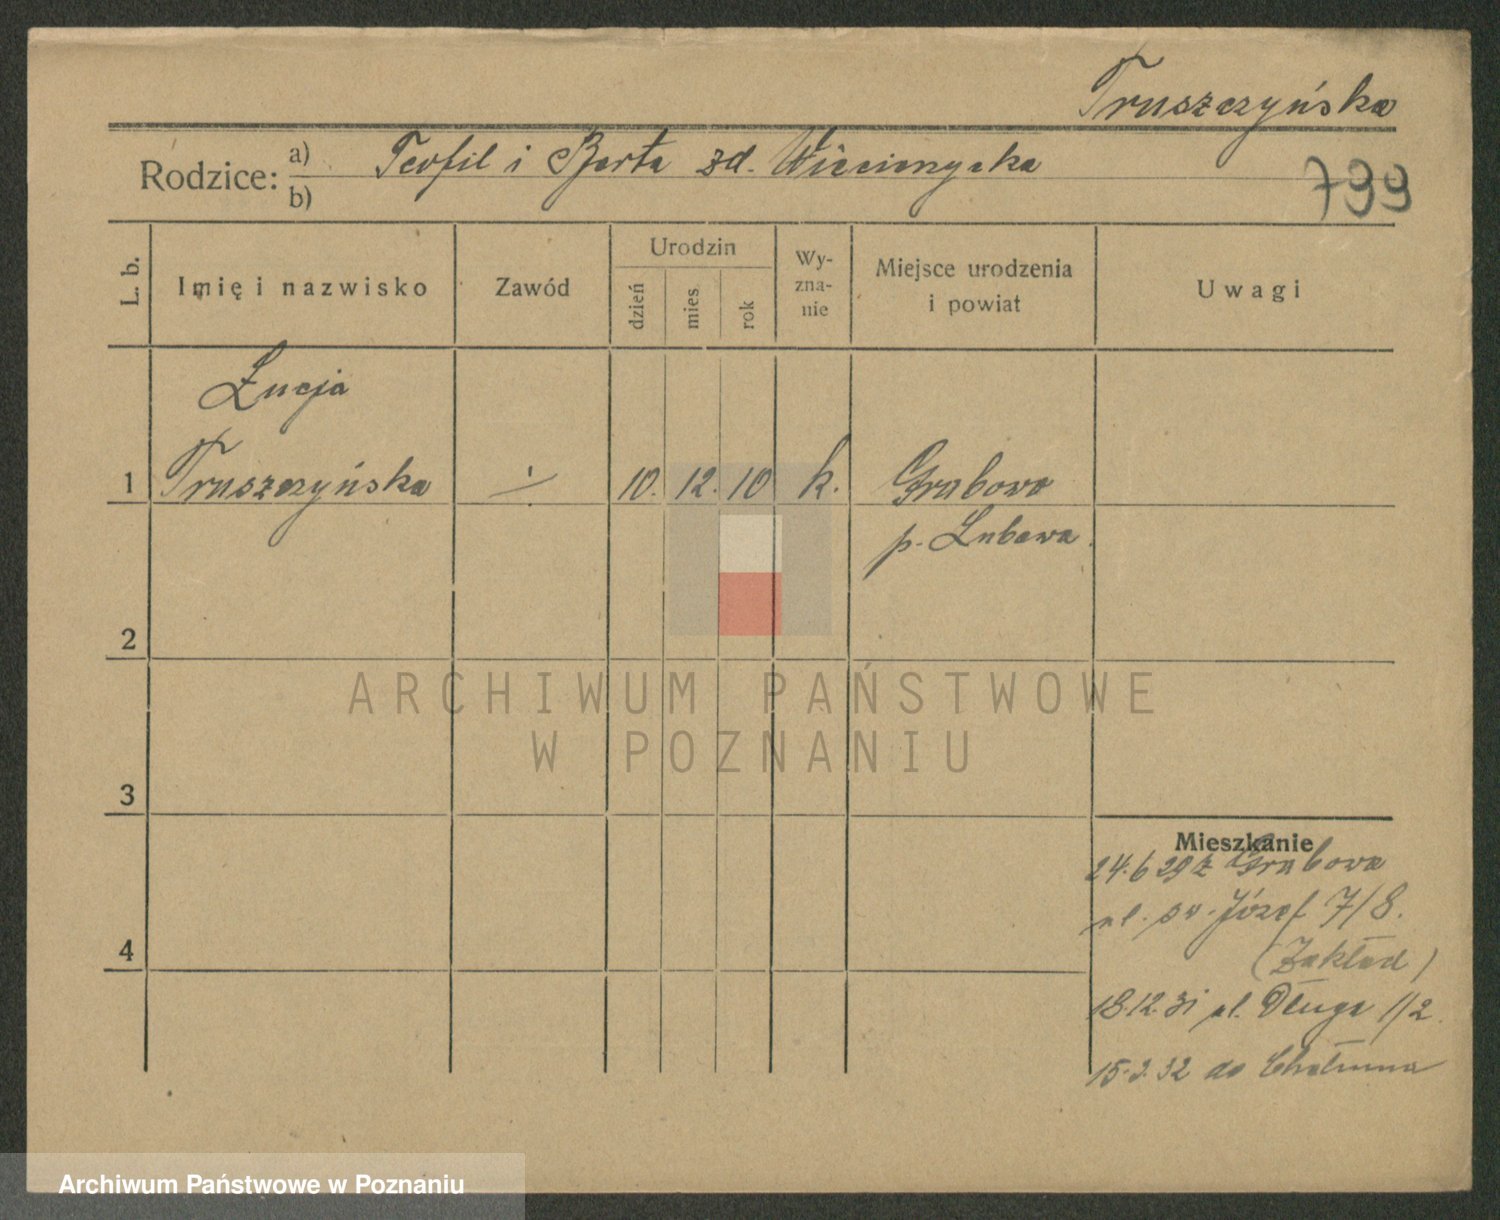 Truszczyńska
Rodzice: a) Teofil i Berta zd.
b)
799
L. b.
Imię i nazwisko
Zawód
Urodzin
dzień
mies
rok
Wy-
zna-
nie
Miejsce urodzenia
i powiat
Uwagi
Łucja
1 Truszczyńska 10. 12. 10 k. Grabowo
p. Lubawa.
2
3
4
Mieszkanie
24.6 29 z Grabowa
ul. św. Józef 7/8.
(Zakład)
18.12.31 ul. Długa 1/2
15.3.32 do Chełmna
ARCHIWUM PAŃSTWOWE
W POZNANIU
Archiwum Państwowe w Poznaniu